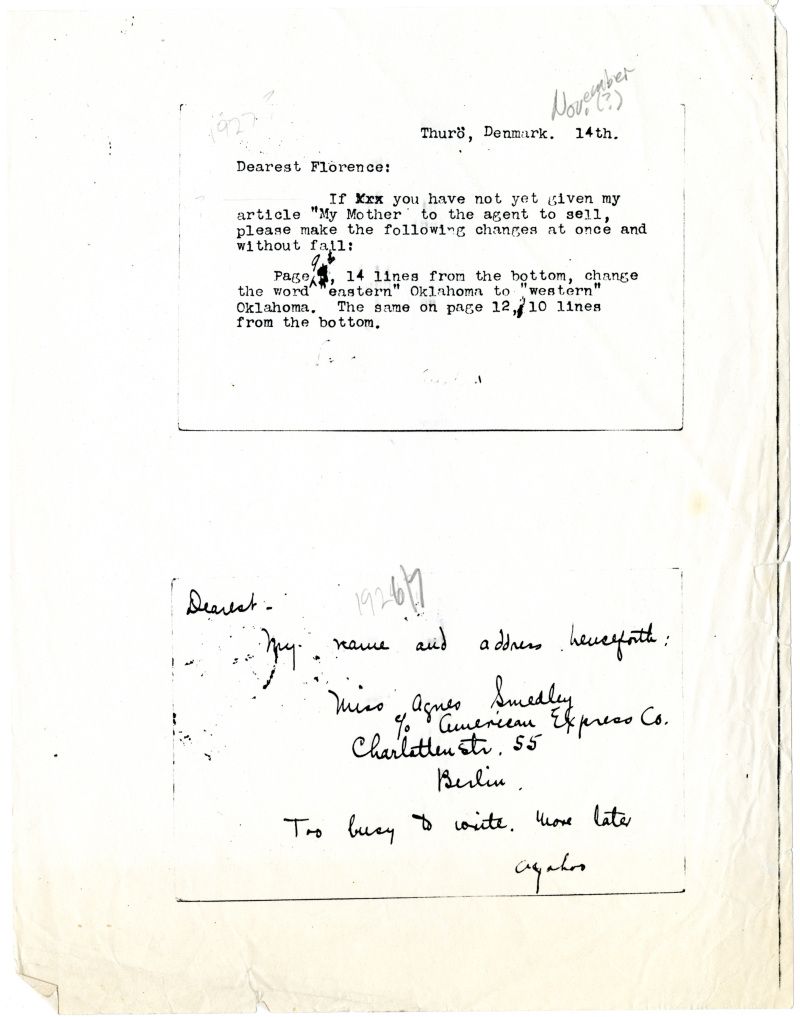 November
(?)
1927?
Thurö, Denmark. 14th.
Dearest Florence:
If xxx you have not yet given my
article "My Mother to the agent to sell,
please make the following changes at once and
without fail:
Page , 14 lines from the bottom, change
the word "eastern" Oklahoma to "western"
Oklahoma. The same on page 12, 10 lines
from the bottom.
Dearest -
1926/7
My name and address henceforth:
Miss Agnes Smedley
c/o American Express Co.
Charlottenstr. 55
Berlin.
Too busy to write. More later